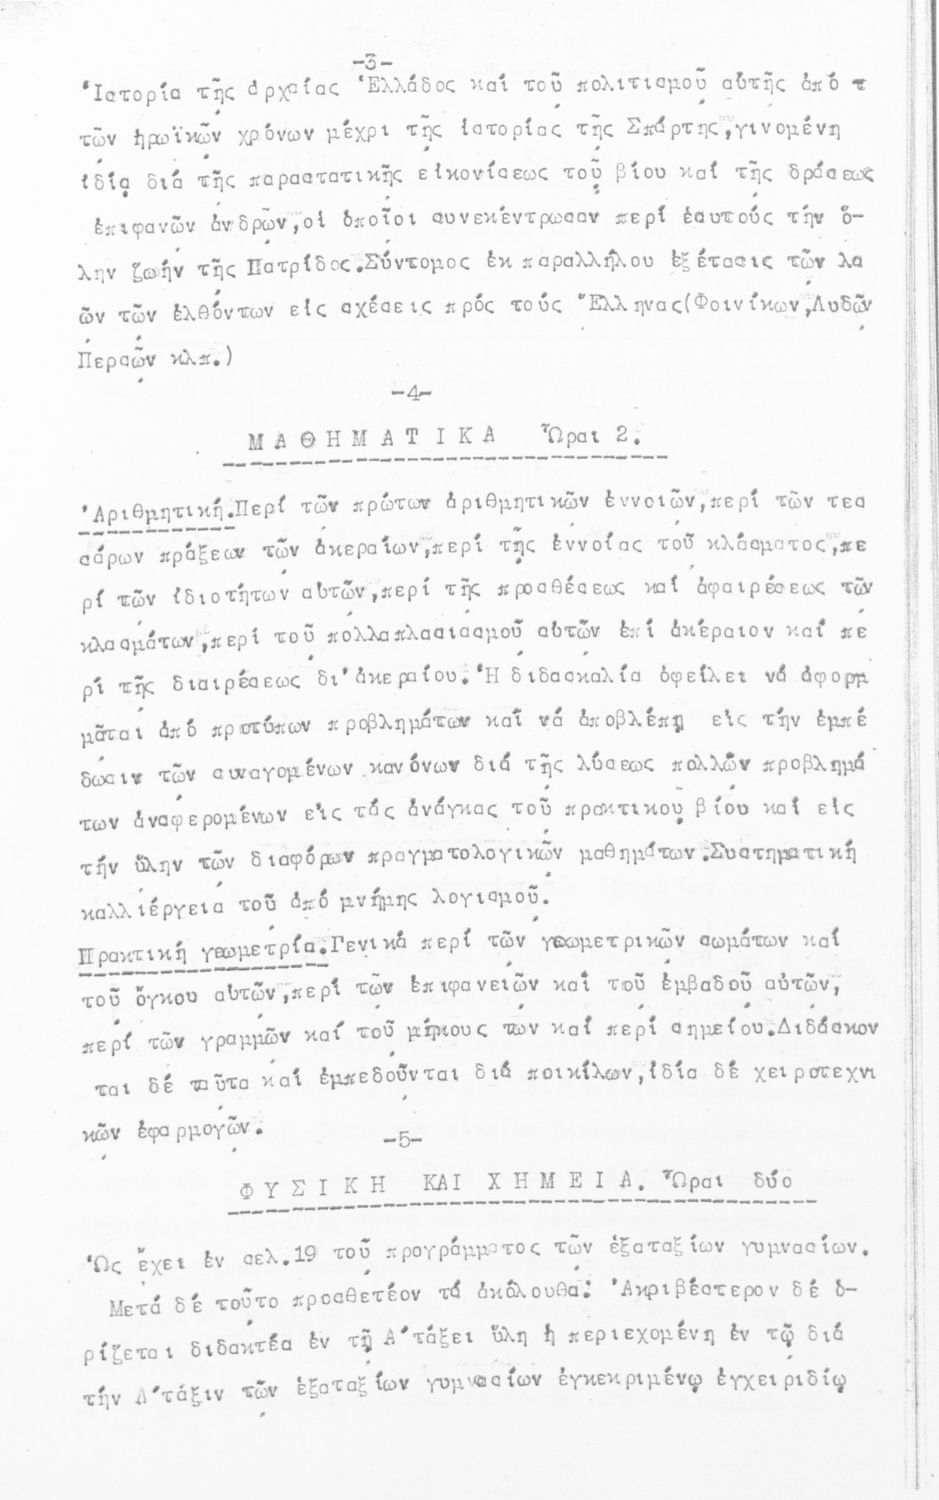 -3-
Ἱστορία τῆς ἀρχαίας Ἑλλάδος καί τοῦ πολιτισμοῦ αὐτῆς ἀπό τ
τῶν ἡρωϊκῶν χρόνων μέχρι τῆς ἱστορίας τῆς Σπάρτης,γινομένη
ἰδίᾳ διά τῆς παραστατικῆς εἰκονίσεως τοῦ βίου καί τῆς δράσεως
ἐπιφανῶν ἀνδρῶν,οἱ ὁποῖοι συνεκέντρωσαν περί ἑαυτούς τήν ὅ-
λην ζωήν τῆς Πατρίδος.Σύντομος ἐκ παραλλήλου ἐξέτασις τῶν λα
ῶν τῶν ἐλθόντων εἰς σχέσεις πρός τούς Ἕλληνας(Φοινίκων,Λυδῶν
Περσῶν κλπ.)
-4-
ΜΑΘΗΜΑΤΙΚΑ Ὧραι 2.
Ἀριθμητική.Περί τῶν πρώτων ἀριθμητικῶν ἐννοιῶν,περί τῶν τεσ
σάρων πράξεων τῶν ἀκεραίων,περί τῆς ἐννοίας τοῦ κλάσματος,πε
ρί τῶν ἰδιοτήτων αὐτῶν,περί τῆς προσθέσεως καί ἀφαιρέσεως τῶν
κλασμάτων,περί τοῦ πολλαπλασιασμοῦ αὐτῶν ἐπί ἀκέραιον καί πε
ρί τῆς διαιρέσεως δι' ἀκεραίου.Ἡ διδασκαλία ὀφείλει νά ἀφορμ
μᾶται ἀπό προτύπων προβλημάτων καί νά ἀποβλέπῃ εἰς τήν ἐμπέ
δωσιν τῶν συναγομένων κανόνων διά τῆς λύσεως πολλῶν προβλημά
των ἀναφερομένων εἰς τάς ἀνάγκας τοῦ πρακτικοῦ βίου καί εἰς
τήν ὕλην τῶν διαφόρων πραγματολογικῶν μαθημάτων.Συστηματική
καλλιέργεια τοῦ ἀπό μνήμης λογισμοῦ.
Πρακτική γεωμετρία.Γενικά περί τῶν γεωμετρικῶν σωμάτων καί
τοῦ ὄγκου αὐτῶν,περί τῶν ἐπιφανειῶν καί τοῦ ἐμβαδοῦ αὐτῶν,
περί τῶν γραμμῶν καί τοῦ μήκους των καί περί σημείου.Διδάσκον
ται δέ ταῦτα καί ἐμπεδοῦνται διά ποικίλων,ἰδία δέ χειροτεχνι
κῶν ἐφαρμογῶν.
-5-
ΦΥΣΙΚΗ ΚΑΙ ΧΗΜΕΙΑ. Ὧραι δύο
Ὡς ἔχει ἐν σελ.19 τοῦ προγράμματος τῶν ἑξαταξίων γυμνασίων.
Μετά δέ τοῦτο προσθετέον τά ἀκόλουθα: Ἀκριβέστερον δέ ὁ-
ρίζεται διδακτέα ἐν τῇ Α'τάξει ὕλη ἡ περιεχομένη ἐν τῷ διά
τήν Α'τάξιν τῶν ἑξαταξίων γυμνασίων ἐγκεκριμένῳ ἐγχειριδίῳ